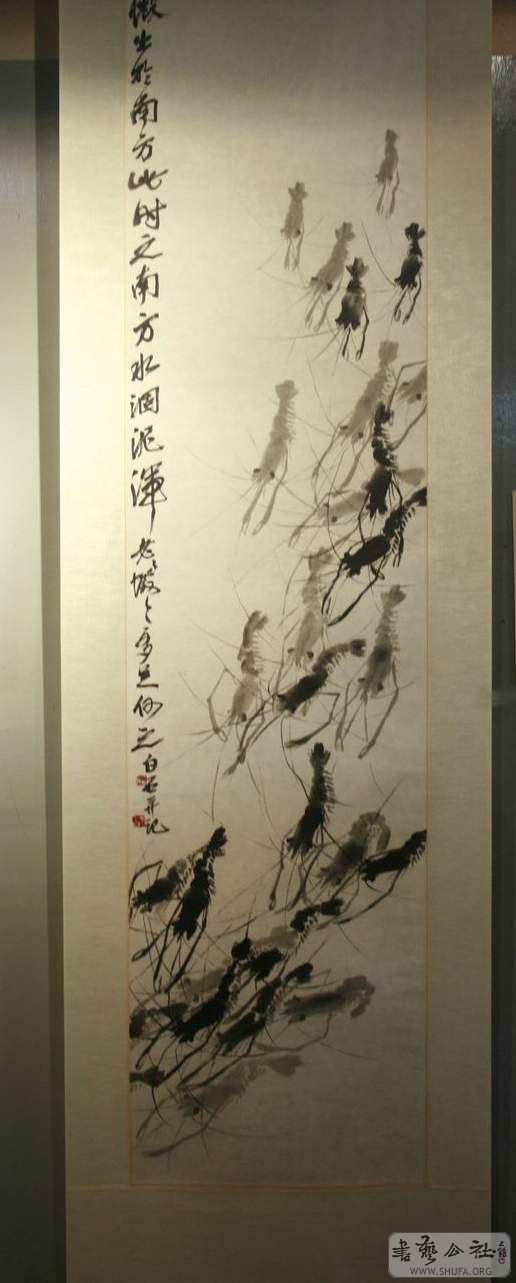 蝦生於南方此时之南方水涸泥渾
老蝦〻多足何之
白石并记
書藝公社
WWW.SHUFA.ORG